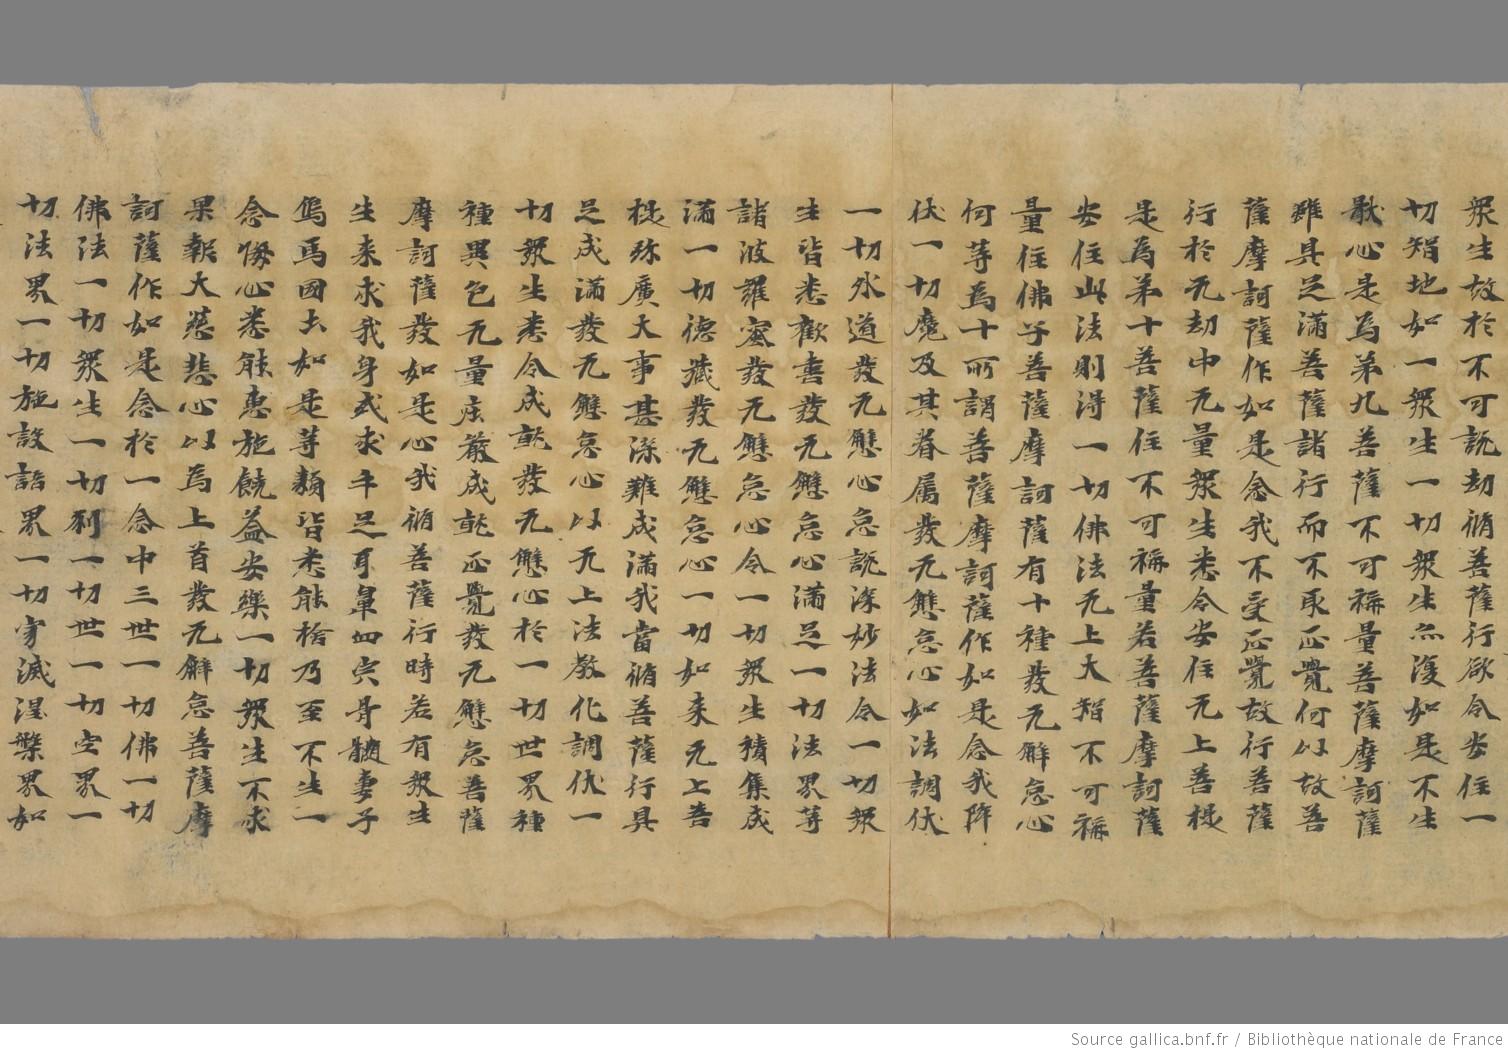 眾生故於不可說劫脩菩薩行欲令安住一
切智地如一眾生一切眾生亦復如是不生
猒心是為苐九菩薩不可稱量菩薩摩訶薩
雖具足滿菩薩諸行而不取正覺何以故菩
薩摩訶薩作如是念我不受正覺故行菩薩
行於无劫中无量眾生悉令安住无上菩提
是為苐十菩薩住不可稱量若菩薩摩訶薩
安住此法則得一切佛法无上大智不可稱
量住佛子菩薩摩訶薩有十種發无懈怠心
何等為十所謂菩薩摩訶薩作如是念我降
伏一切魔及其眷属發无懈怠心如法調伏
一切外道發无懈心怠說深妙法令一切眾
生皆悉歡喜發无懈怠心滿足一切法界等
諸波羅蜜發无懈怠心令一切眾生積集成
滿一切德藏發无懈怠心一切如来无上菩
提弥廣大事甚深難成滿我當脩菩薩行具
足成滿發无懈怠心以无上法教化調伏一
切眾生悉令成就發无懈心於一切世界種
種異色无量庄嚴成就正覺發无懈怠菩薩
摩訶薩發如是心我脩菩薩行時若有眾生
生来求我身或求手足耳鼻血肉骨髓妻子
鳥馬國土如是等類皆悉能捨乃至不生一
念悔心悉能惠施饒益安樂一切眾生不求
果報大慈悲心以為上首發无懈怠菩薩摩
訶薩作如是念於一念中三世一切佛一切
佛法一切眾生一切刹一切世一切空界一
切法界一切施設語界一切寂滅涅槃界如